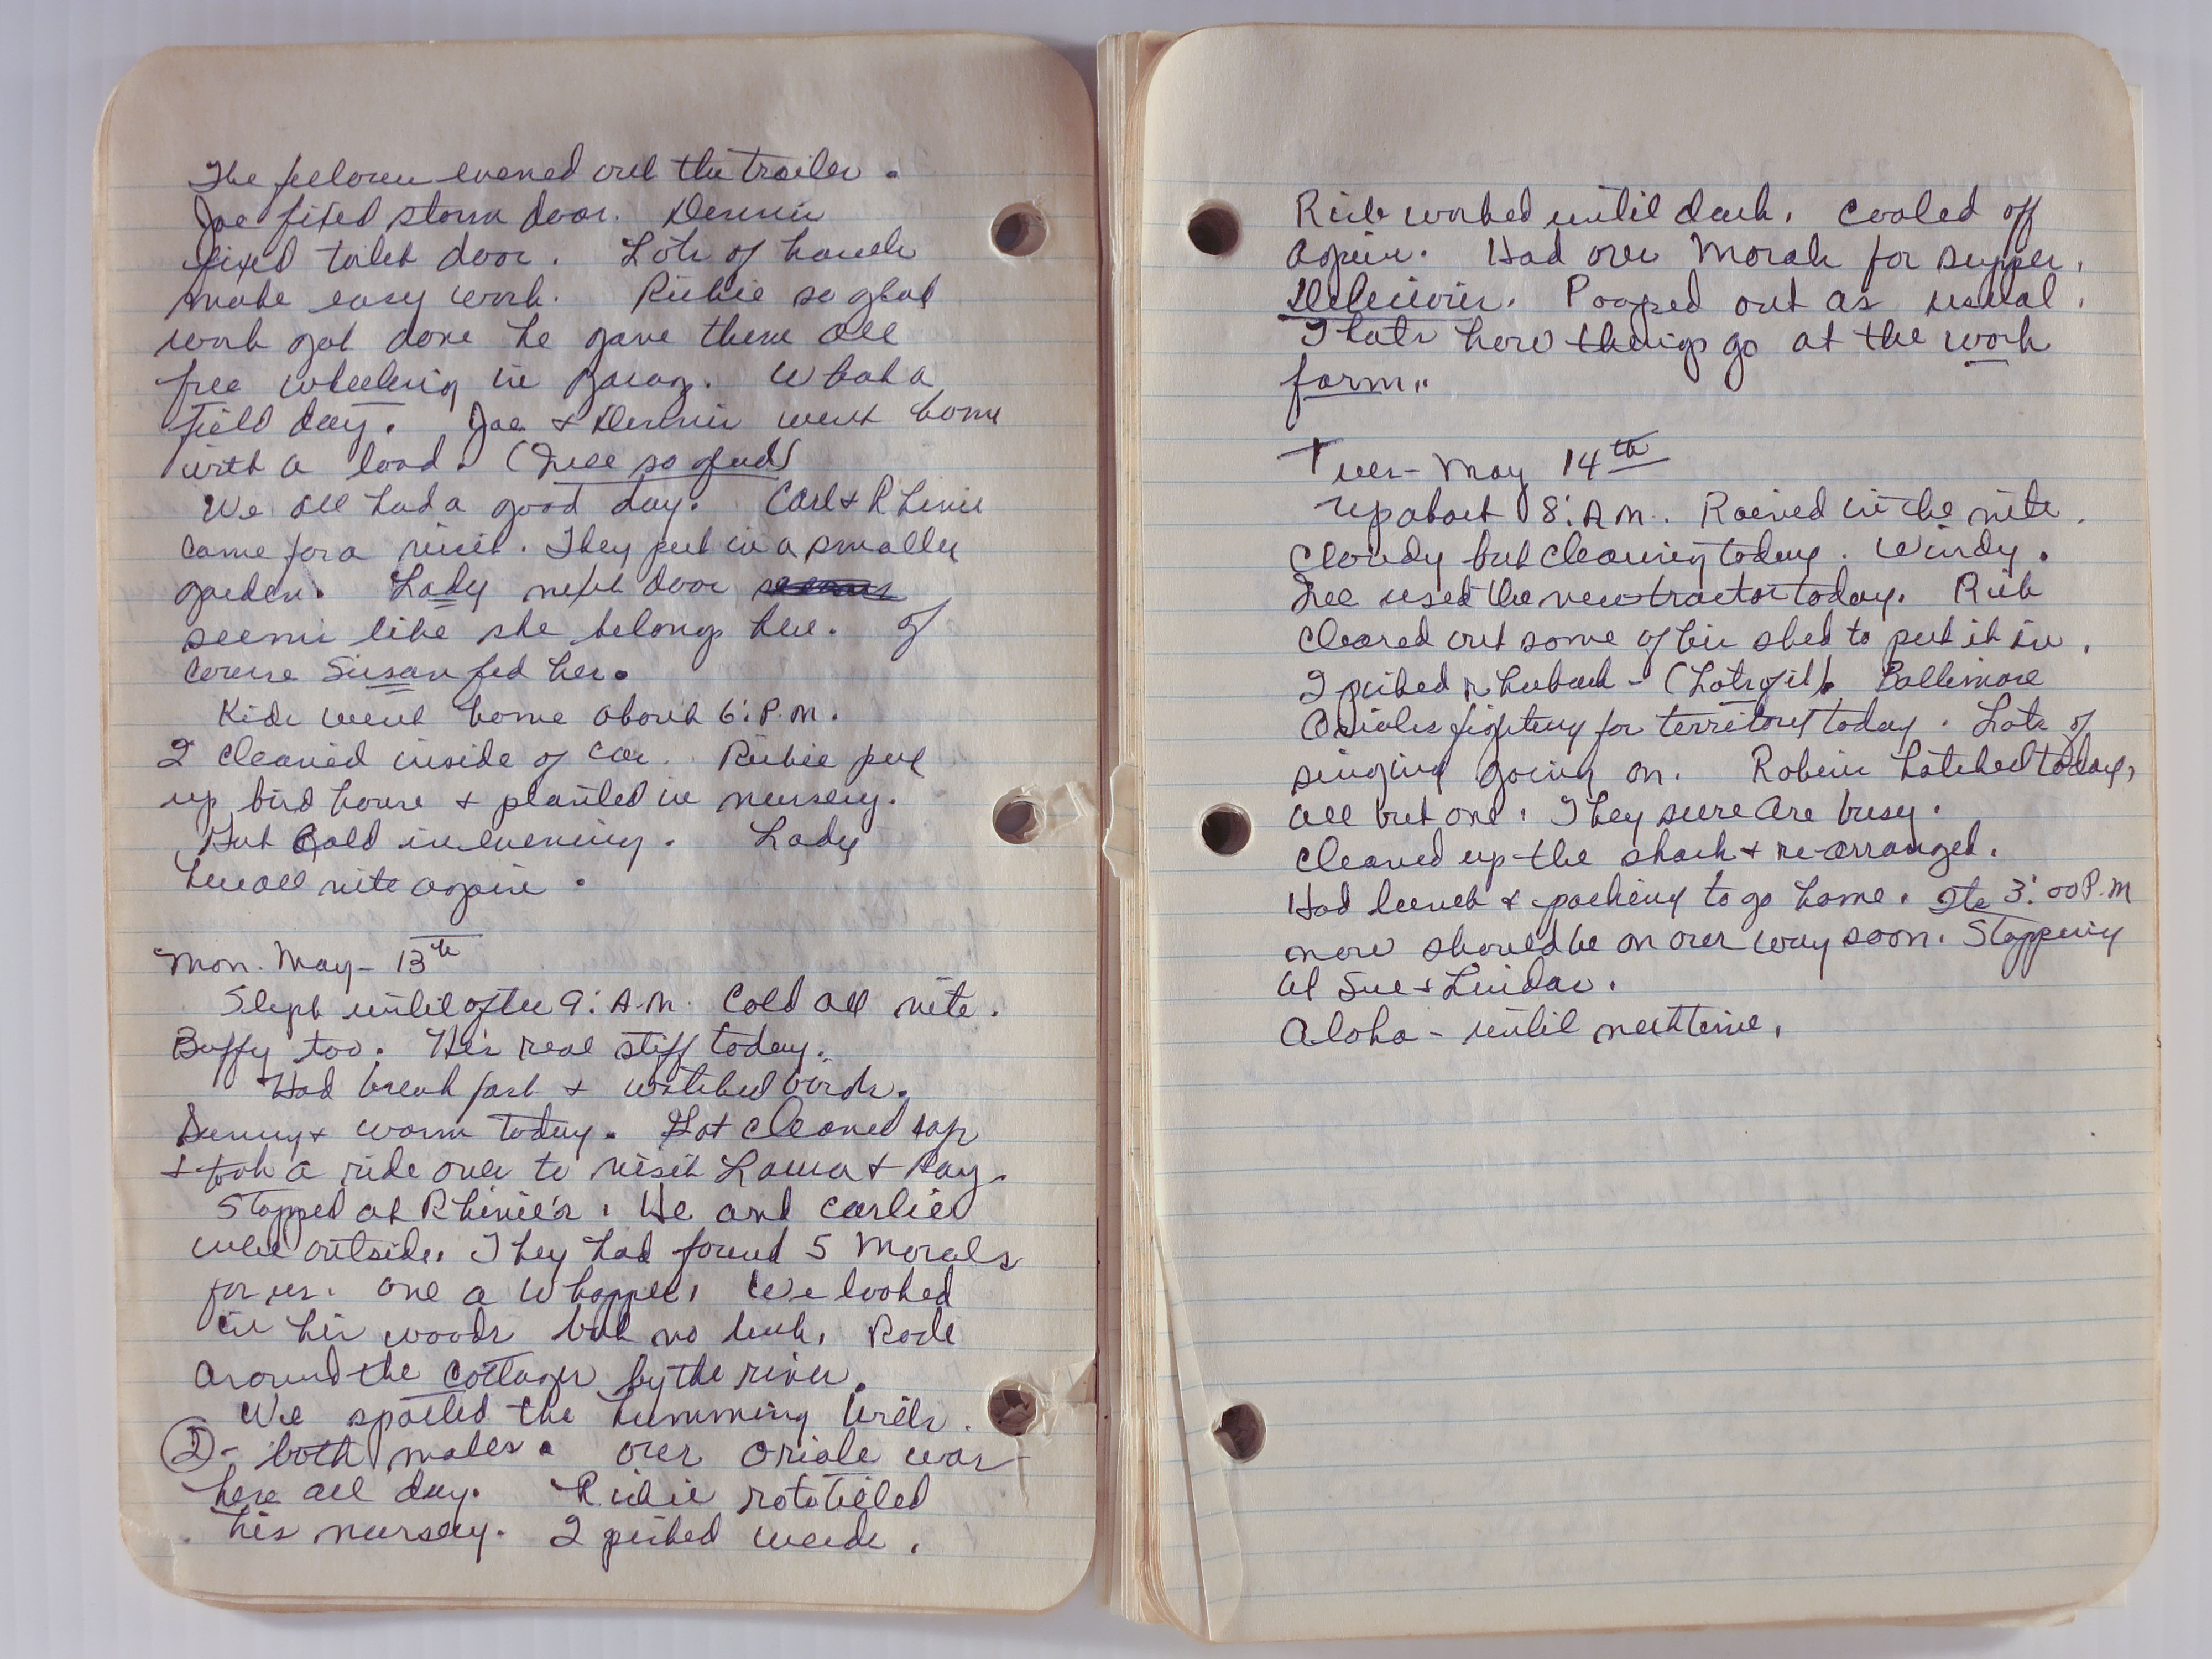 The fellows evened out the trailer.
Joe fixed storm door. Dennis
fixed toilet door. Lots of hands
make easy work. Richie so glad
work got done he gave them all
free wheeling in . What a
field day. Joe & Dennis went home
with a load. ( so glad)
We all had a good day. Carl & Rhinie
came for a visit. They put in a smaller
garden. Lady next door
seems like she belongs here. Of
course Susan fed her.
Kids went home about 6:P.M.
I cleaned inside of car. Richie put
up bird house & planted in nursery.
But Cold in evening. Lady
here all nite again.
Mon. May - 13th
Slept until after 9:A.M. Cold all nite.
Buffy too. He's real stiff today.
Had breakfast & watched birds.
Sunny & warm today. Got cleaned up
& took a ride over to visit Laura & Ray.
Stopped at Rhinie's. He and Carlie
were outside. They had found 5 Morals
for us. One a Whopper. We looked
in his woods but no luck. Rode
around the cottages by the river.
We spotted the humming birds.
2 - both males. Our Oriole was
here all day. Richie rototilled
his nursery. I picked weeds.
Rich worked until dark. Cooled off
again. Had our Morals for supper.
Delicious. Pooped out as usual.
Thats how things go at the work
farm.
Tues - May 14th
Up about 8:A.M. Rained in the nite.
Cloudy but clearing today. Windy.
used the new tractor today. Rich
cleared out some of his shed to put it in.
I picked rhubarb - (Lots of it). Baltimore
Orioles fighting for territory today. Lots of
singing going on. Robins hatched today,
all but one. They sure are busy.
Cleaned up the shack & re-arranged.
Had lunch & packing to go home. Its 3:00 P.M
now should be on our way soon. Stopping
at Sue & Lindas.
Aloha - until next time.